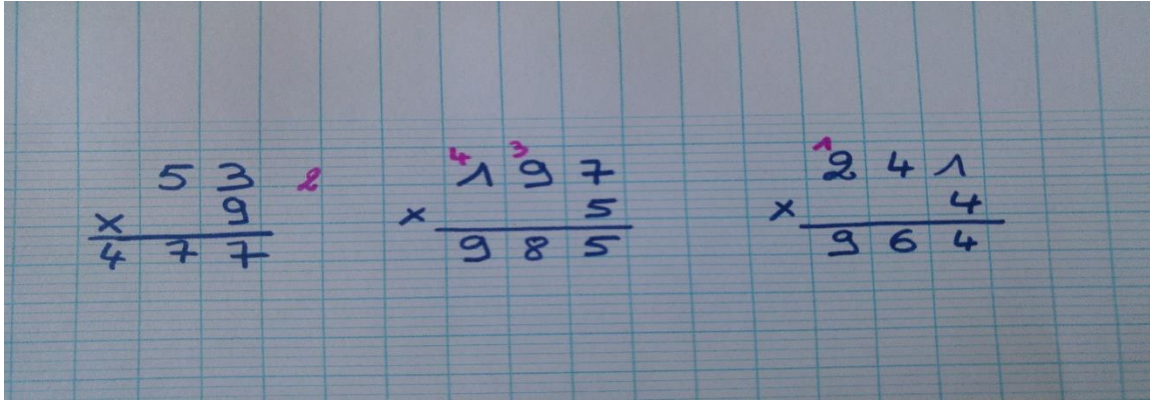 5 3 2
x 9
4 7 7
4 3
1 9 7
x 5
9 8 5
1
2 4 1
x 4
9 6 4